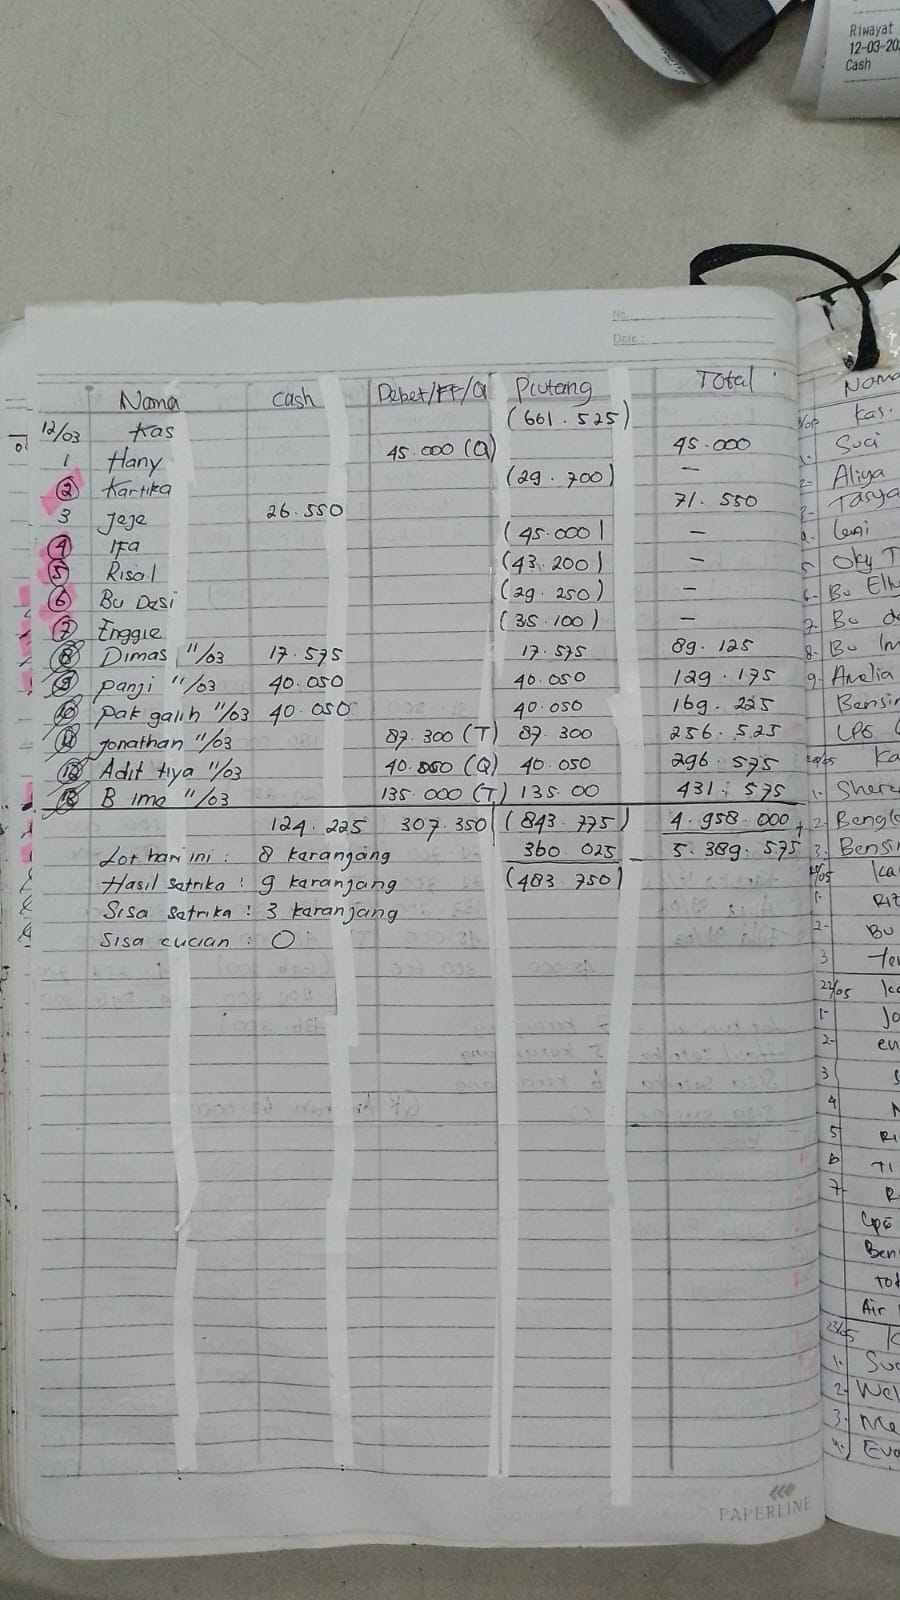 Riwayat
12-03-20
Cash
No.
Date :
Nama Cash Debet/TF/Q Piutang Total
12/03 Kas (661.525)
1 Hany 45.000 (Q) 45.000
2 Kartika (29.700) —
3 Jeje 26.550 71.550
4 Ifa (45.000) —
5 Risal (43.200) —
6 Bu Desi (29.250) —
7 Enggie (35.100) —
8 Dimas 11/03 17.575 17.575 89.125
9 Panji 11/03 40.050 40.050 129.175
10 Pak galih 11/03 40.050 40.050 169.225
11 Jonathan 11/03 87.300 (T) 87.300 256.525
12 Adit tiya 11/03 40.050 (Q) 40.050 296.575
13 B ime 11/03 135.000 (T) 135.00 431.575
124.225 307.350 (843.775) 4.958.000 +
Lot hari ini : 8 karanjang 360.025 – 5.389.575
Hasil satrika : 9 karanjang (483.750)
Sisa satrika : 3 karanjang
Sisa cucian : 0
PAPERLINE
Nama
Kas.
1. Suci
2- Aliya
Tasya
5 Oky T
6- Bu
7. Bu
8. Bu
9. Amelia
Bensin
Ka
1.
2.
3. Bensin
1.
2- Bu
3
22/05
1-
2-
3
4
5
7-
Ben
Air
23/05
1.
2-
3.
4.